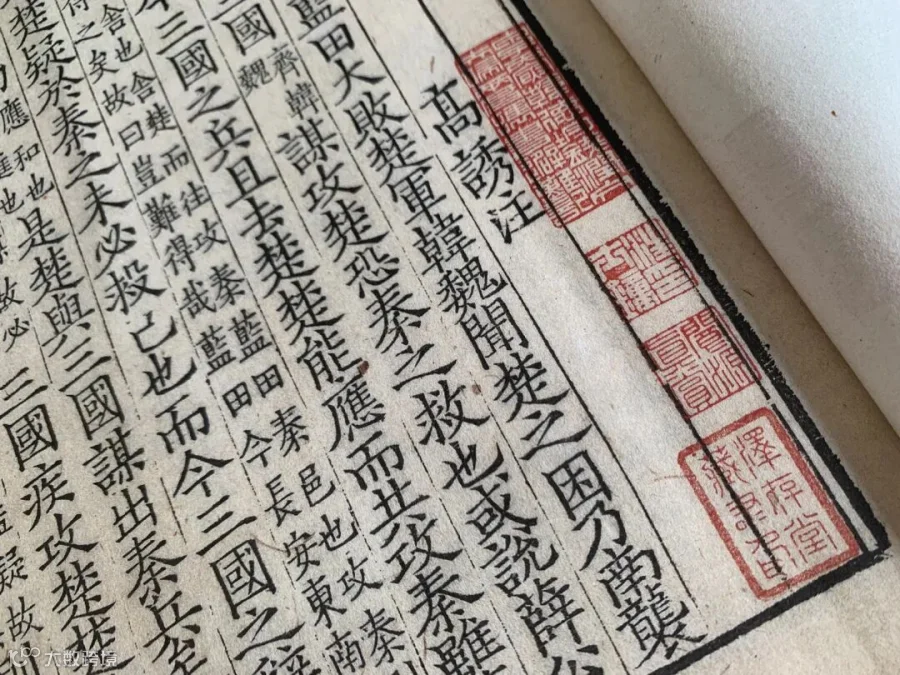 高誘注
藍田大敗楚軍韓魏聞楚之困乃南襲
國
齊韓
魏
謀攻楚恐秦之救也或說薛公
三國之兵且去楚楚能應而共攻秦雖
舍也舍楚而往攻秦藍田秦邑也攻秦
得之矣故曰豈難得哉藍田今長安東南
楚疑於秦之未必救己也而今三國之辭
應和也
是楚與三國謀出秦兵至
故必
三國疾攻楚楚
疑故
澤存堂
大数跨境